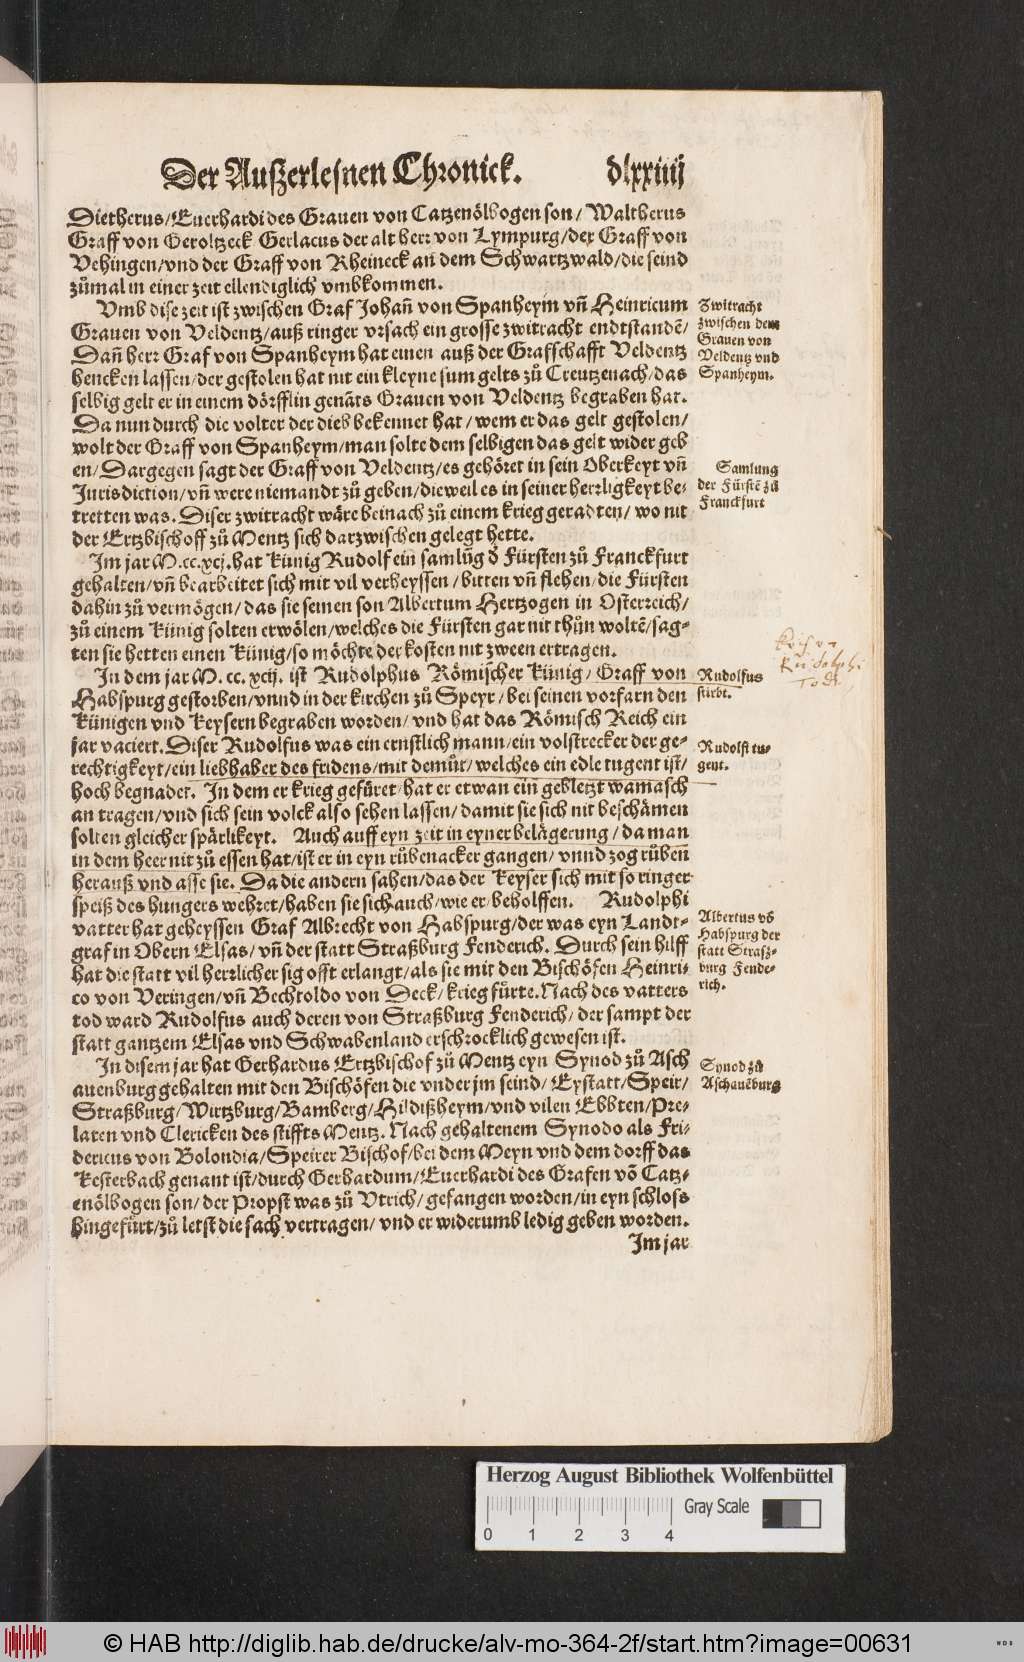 Der Außerlesnen Chronick. dlxxiiij
Dietherus/Euerhardi des Grauen von Catzenölbogen son/ Waltherus
Graff von Geroltzeck Gerlacus der alt herr von Lympurg/der Graff von
Vehingen/vnd der Graff von Rheineck an dem Schwartzwald/die seind
zůmal in einer zeit ellendiglich vmbkommen.
Vmb dise zeit ist zwischen Graf Johañ von Spanheym vñ Heinricum
Grauen von Veldentz/auß ringer vrsach ein grosse zwitracht endtstandē/
Dañ herr Graf von Spanheym hat einen auß der Grafschafft Veldentz
hencken lassen/der gestolen hat nit ein kleyne sum gelts zů Creutzenach/das
selbig gelt er in einem dörfflin genāts Grauen von Veldentz begraben hat.
Da nun durch die volter der dieb bekennet hat/wem er das gelt gestolen/
wolt der Graff von Spanheym/man solte dem selbigen das gelt wider geb
en/Dargegen sagt der Graff von Veldentz/es gehöret in sein Oberkeyt vñ
Jurisdiction/vñ were niemandt zů geben/dieweil es in seiner herrligkeyt be-
tretten was. Diser zwitracht wäre beinach zů einem krieg geradten/wo nit
der Ertzbischoff zů Mentz sich darzwischen gelegt hette.
Im jar M.cc.xcj.hat künig Rudolf ein samlūg d̕ Fürsten zů Franckfurt
gehalten/vñ bearbeitet sich mit vil verheyssen/bitten vñ flehen/die Fürsten
dahin zů vermögen/das sie seinen son Albertum Hertzogen in Osterreich/
zů einem künig solten erwölen/welches die Fürsten gar nit thůn woltē/sag-
ten sie hetten einen künig/so möchte der kosten nit zween ertragen.
In dem jar M. cc. xcij. ist Rudolphus Römischer künig/Graff von
Habspurg gestorben/vnnd in der kirchen zů Speyr/bei seinen vorfarn den
künigen vnd keysern begraben worden/vnd hat das Römisch Reich ein
jar vaciert. Diser Rudolfus was ein ernstlich mann/ein volstrecker der ge-
rechtigkeyt/ein liebhaber des fridens/mit demůt/welches ein edle tugent ist/
hoch begnadet. In dem er krieg gefüret hat er etwan ein gebletzt wamasch
an tragen/vnd sich sein volck also sehen lassen/damit sie sich nit beschämen
solten gleicher spärlikeyt. Auch auff eyn zeit in eyner belägerung/da man
in dem heer nit zů essen hat/ist er in eyn růbenacker gangen/vnnd zog růben
herauß vnd asse sie. Da die andern sahen/das der keyser sich mit so ringer
speiß des hungers wehret/haben sie sich auch/wie er/beholffen. Rudolphi
vatter hat geheyssen Graf Albrecht von Habspurg/der was eyn Landt-
graf in Obern Elsas/vñ der statt Straßburg Fenderich. Durch sein hilff
hat die statt vil herrlicher sig offt erlangt/als sie mit den Bischöfen Heinri-
co von Veringen/vñ Bechtoldo von Deck/krieg fürte. Nach des vatters
tod ward Rudolfus auch deren von Straßburg Fenderich/der sampt der
statt gantzem Elsas vnd Schwabenland erschrocklich gewesen ist.
In disem jar hat Gerhardus Ertzbischof zů Mentz eyn Synod zů Asch
auenburg gehalten mit den Bischöfen die vnder jm seind/Eystatt/Speir/
Straßburg/Wirtzburg/Bamberg/Hildißheym/vnd vilen Ebbten/Pre-
laten vnd Clericken des stiffts Mentz. Nach gehaltenem Synodo als Fri-
dericus von Bolondia/Speirer Bischof/bei dem Meyn vnd dem dorff das
Kesterbach genant ist/durch Gerhardum/Euerhardi des Grafen võ Catz-
enölbogen son/der Propst was zů Vtrich/gefangen worden/in eyn schloss
hingefürt/zů letst die sach vertragen/vnd er widerumb ledig geben worden.
Im jar
Zwitracht
zwischen dem
Grauen von
Veldentz vnd
Spanheym.
Samlung
der Fürstē zů
Franckfurt
Rudolphi
Tod.
Rudolfus
stirbt.
Rudolfi tu-
gent.
Albertus võ
Habspurg der
statt Straß-
burg Fende-
rich.
Synod zů
Aschauēburg
Herzog August Bibliothek Wolfenbüttel
Gray Scale
0 1 2 3 4
© HAB http://diglib.hab.de/drucke/alv-mo-364-2f/start.htm?image=00631